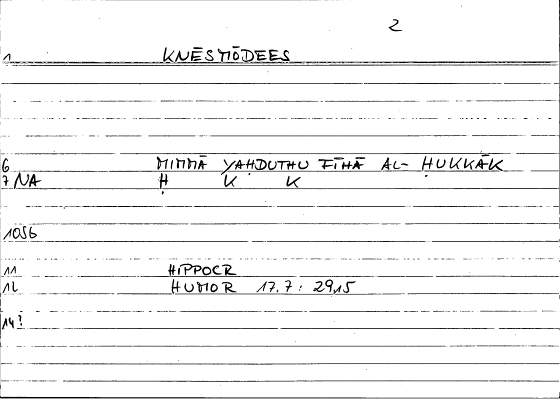 2
1 KNĒSMŌDEES
6 MIMMĀ YAḤDUTHU FĪHĀ AL- ḤUKKĀK
7 NA Ḥ K K
1056
11 HIPPOCR
12 HUMOR 17.7: 29,15
14?